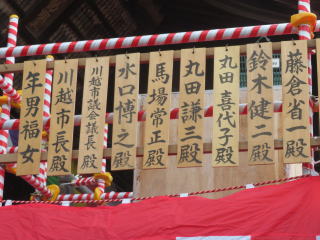 藤倉省一殿
鈴木健二殿
丸田喜代子殿
丸田謙三殿
馬場常正殿
水口博之殿
川越市議会議長殿
川越市長殿
年男福女